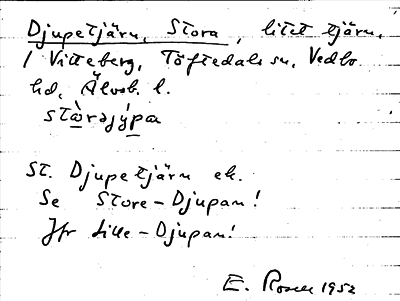 Djupetjärn, Stora, litet tjärn,
/ Vitteberg, Töftedals sn, Vedbo
hd, Älvsb. l.
stɷ̀rajýpa
St. Djupetjärn ek.
Se Store-Djupan!
Jfr Lille-Djupan!
E. Rosell 1952